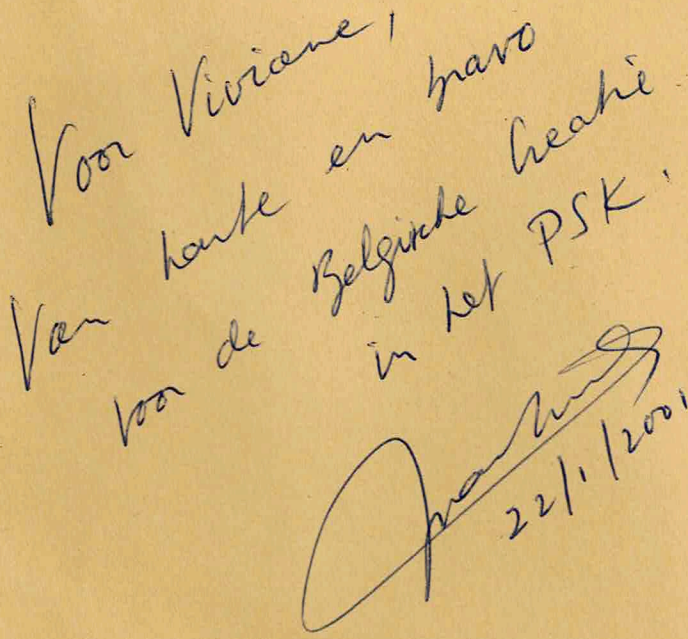 Voor Viviane,
Van harte en bravo
voor de Belgische Creatie
in het PSK.
22/1/2001